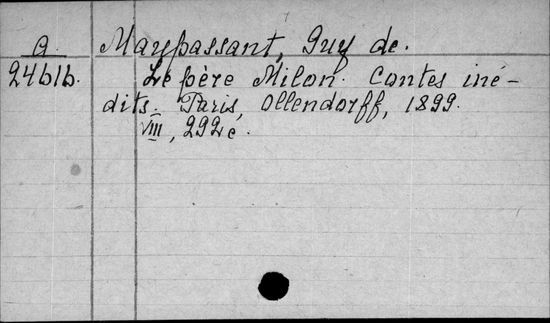 a. Maupassant, Guy de.
24616. Le père Milon. Contes iné-
dits. Paris, Ollendorff, 1899.
VIII, 292 c.